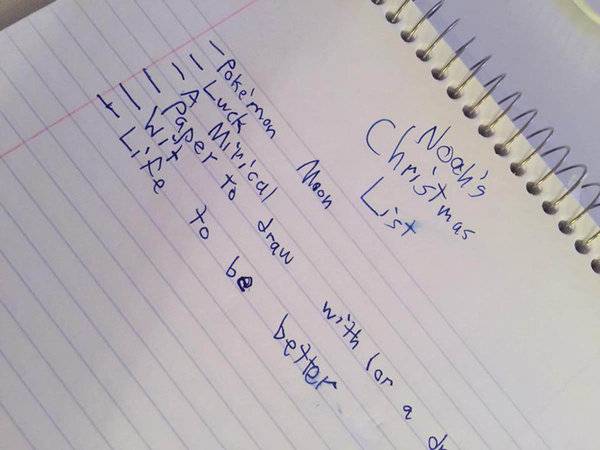 Noah's
Christmas
List
- Pokémon Moon
- Luck
- A Mirical
- Paper to draw with (or a
- Wit
- Life to be better